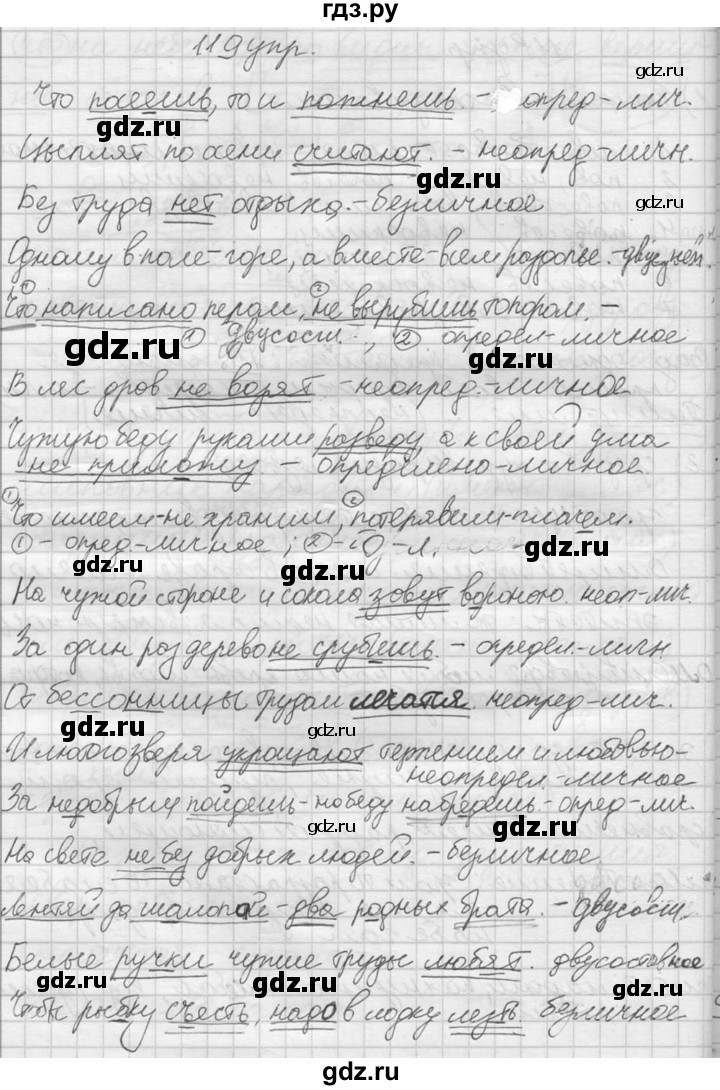 гдз.ру
119 упр.
gdz.ru
Что посеешь, то и пожнешь. - опред-лич.
gdz.ru
gdz.ru
Цыплят по осени считают. - неопред-личн.
gdz.ru
Без труда нет отдыха. - безличное
gdz.ru
Одному в поле - горе, а вместе - всем раздолье. -
Что написано пером, не вырубишь топором. -
① двусост. , ② определ-личное
gdz.ru
gdz.ru
В лес дров не возят - неопред.-личное
Чужую беду руками разведу а к своей ума
не приложу - определено-личное
gdz.ru
Что имеем - не храним, потерявши - плачем.
① - опред-личное ; ② -
gdz.ru
gdz.ru
На чужой стороне и сокола зовут вороною. неоп-лич.
gdz.ru
За один раз дерево не срубишь. - определ-личн
gdz.ru
От бессонницы трудом лечатся. неопред-лич.
gdz.ru
gdz.ru
И лютого зверя укрощают терпением и любовью -
неопредел.-личное
gdz.ru
За недобрым пойдешь - на беду набредешь - опред-лич.
gdz.ru
gdz.ru
На свете не без добрых людей. - безличное
gdz.ru
Лентяй да шалопай - два родных брата. - двусост.
gdz.ru
Белые ручки чужие труды любят. двусоставное
gdz.ru
gdz.ru
Чтобы рыбку съесть, надо в лодку лезть. безличное
gdz.ru
gdz.ru